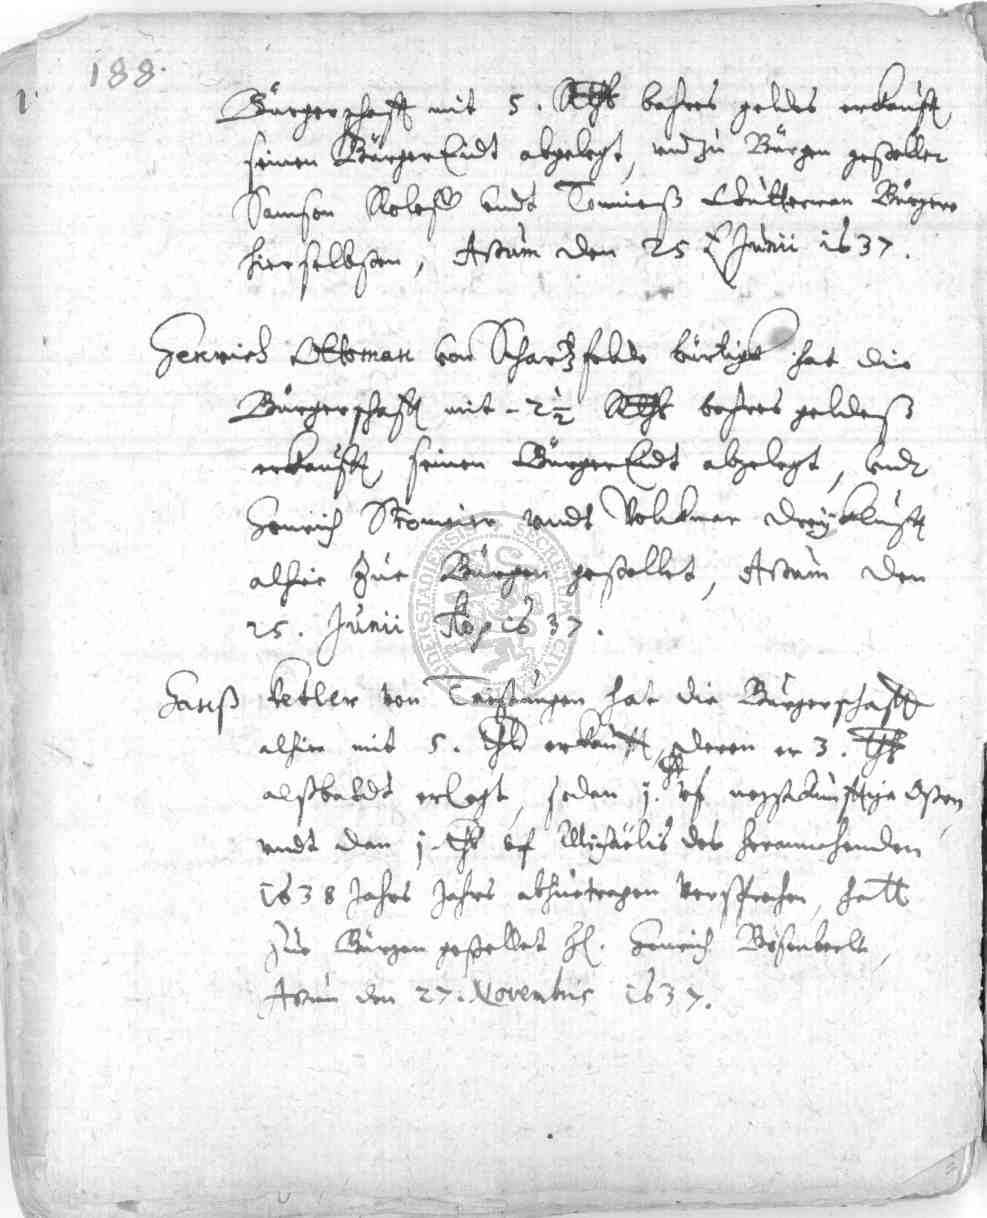 188.
1.
Bürgerschafft mit 5. Rthlr bahres geldes erkaufft
seinen BürgerEidt abgelegt, und zu Bürgen gestellet
Samson undt Tonnieß Bürgere
hierselbsten, Actum den 25 Junii 1637.
Henrich Ottoman von Schartzfelde bürtigk hat die
Bürgerschafft mit 2½ Rthlr bahres geldeß
erkaufft, seinen BürgerEidt abgelegt, undt
Henrich undt Volckmar
alhie zue Bürgen gestellet, Actum den
25. Junii 1637.
Hanß Ketler von Taistungen hat die Bürgerschafft
alhie mit 5. thlr erkaufft, deren er 3. thlr
alßbaldt erlegt, jeden 1. thlr uf negstkünfftige Ostern
undt den j. thlr uf Michaëlis des herannahenden
1638 Jahrs Jahrs abzuetragen versprochen, hatt
zue Bürgen gestellet H. Henrich Bösenberlt,
Actum den 27. Novembris 1637.
SECRETUM CIVI DUDERSTADIENSIS